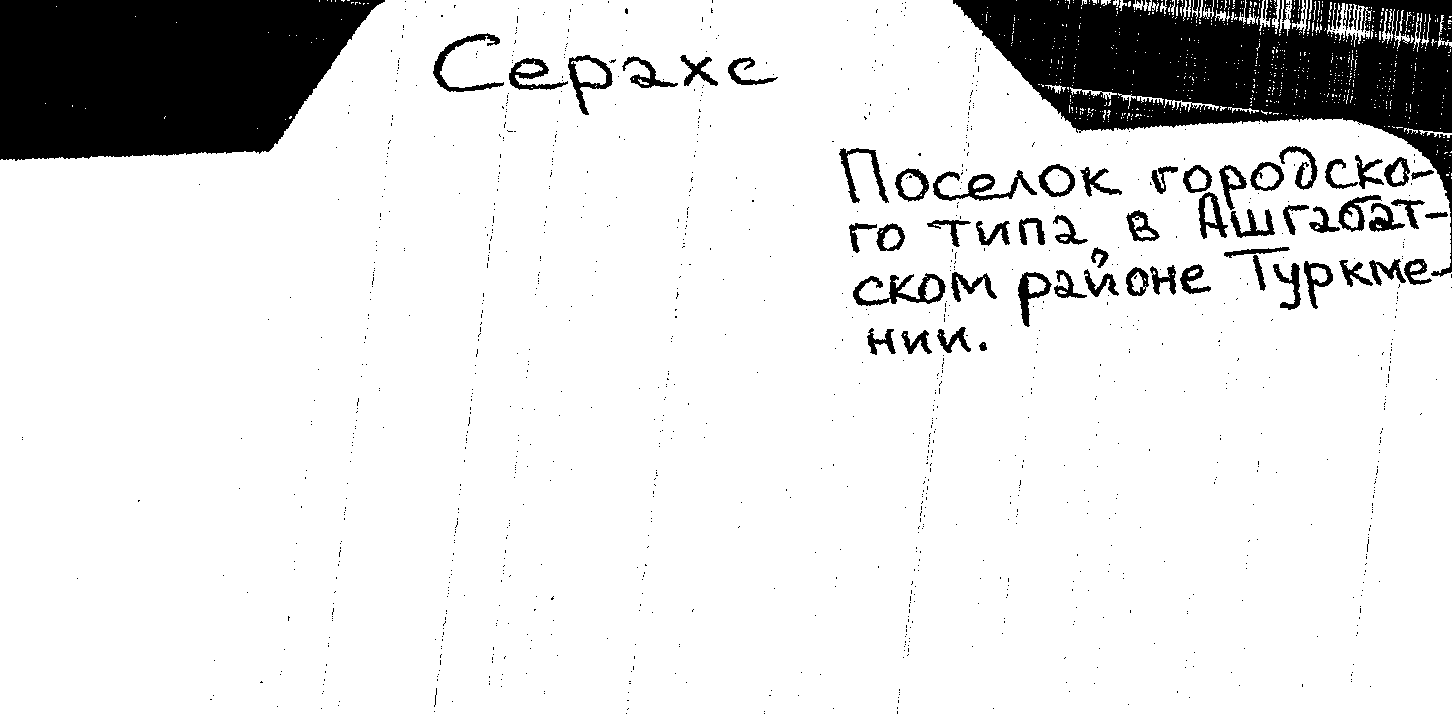 Серахс
Поселок городско-
го типа, в Ашгабат-
ском районе Туркме-
нии.